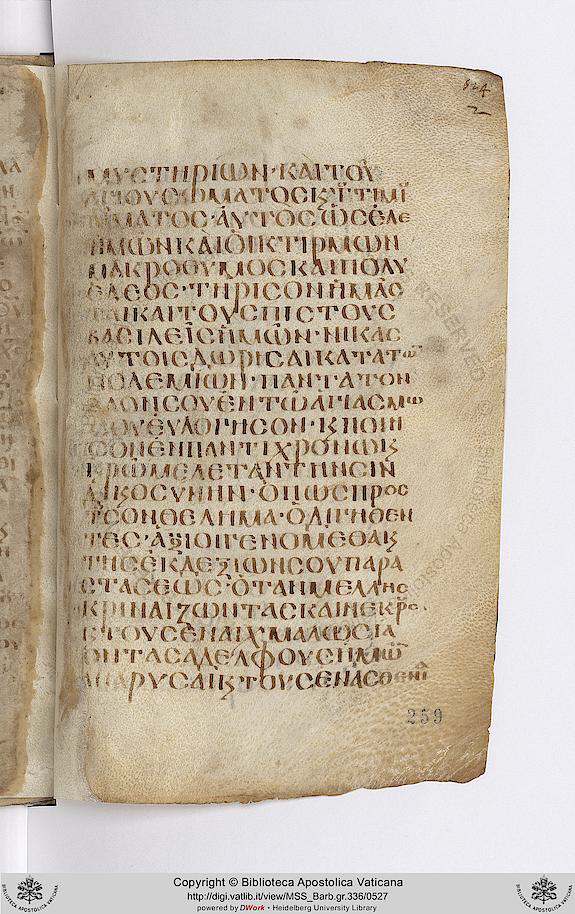 524
2
ΜΥΣΤΗΡΙΩΝ·ΚΑΙ ΤΟΥ
ΑΓΙΟΥ ΣΩΜΑΤΟΣ Κ ΤΙΜΙ
ΑΙΜΑΤΟΣ·ΑΥΤΟΣ Ω ΘΕ ΕΛΕ
ΗΜΩΝ ΚΑΙ ΟΙΚΤΙΡΜΩΝ
ΜΑΚΡΟΘΥΜΟΣ ΚΑΙ ΠΟΛΥ
ΕΛΕΟΣ·ΤΗΡΙΣΟΝ ΗΜΑΣ
ΚΑΙ ΤΟΥΣ ΠΙΣΤΟΥΣ
ΒΑΣΙΛΕΙΣ ΗΜΩΝ·ΝΙΚΑΣ
ΑΥΤΟΙΣ ΔΩΡΗΣΑΙ ΚΑΤΑ ΤΩ
ΠΟΛΕΜΙΩΝ·ΠΑΝΤΑ ΤΟΝ
ΛΑΟΝ ΣΟΥ ΕΝ ΤΩ ΑΓΙΑΣΜΩ
ΣΟΥ ΕΥΛΟΓΗΣΟΝ·Κ ΠΟΙΗ
ΣΟΝ ΕΝ ΠΑΝΤΙ ΧΡΟΝΩ Κ
ΚΑΙΡΩ ΜΕΛΕΤΑΝ ΤΗΝ ΣΗΝ
ΔΙΚΟΣΥΝΗΝ·ΟΠΩΣ ΠΡΟΣ
ΤΟ ΣΟΝ ΘΕΛΗΜΑ·ΟΔΙΓΗΘΕΝ
ΤΕΣ·ΑΞΙΟΙ ΓΕΝΟΜΕΘΑ Κ
ΤΗΣ ΕΚ ΔΕΞΙΩΝ ΣΟΥ ΠΑΡΑ
ΣΤΑΣΕΩΣ·ΟΤΑΝ ΜΕΛΛΗΣ
ΚΡΙΝΑΙ ΖΩΝΤΑΣ ΚΑΙ ΝΕΚΡΟΥΣ
ΤΟΥΣ ΕΝ ΑΙΧΜΑΛΩΣΙΑ
ΟΝΤΑΣ ΑΔΕΛΦΟΥΣ ΗΜΩ
ΑΝΑΡΥΣΑΙ Κ ΤΟΥΣ ΕΝ ΑΣΘΕΝΙ
259
Copyright © Biblioteca Apostolica Vaticana
http://digi.vatlib.it/view/MSS_Barb.gr.336/0527
powered by DWork - Heidelberg University Library